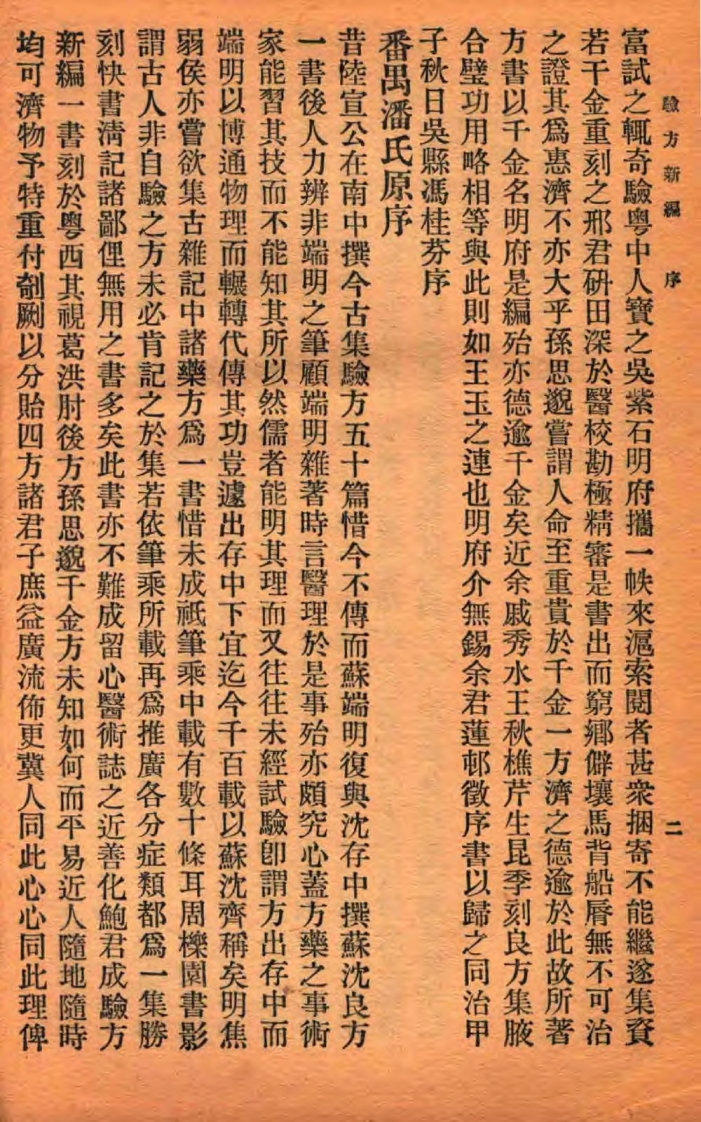 驗方新編 序 二
富試之輒奇驗粵中人寶之吳紫石明府攜一帙來滬索閱者甚衆捆寄不能繼遂集資
若干金重刻之邢君硏田深於醫校勘極精審是書出而窮鄉僻壤馬背船脣無不可治
之證其爲惠濟不亦大乎孫思邈嘗謂人命至重貴於千金一方濟之德逾於此故所著
方書以千金名明府是編殆亦德逾千金矣近余戚秀水王秋樵芹生昆季刻良方集腋
合璧功用略相等與此則如王玉之連也明府介無錫余君蓮邨徵序書以歸之同治甲
子秋日吳縣馮桂芬序
番禺潘氏原序
昔陸宣公在南中撰今古集驗方五十篇惜今不傳而蘇端明復與沈存中撰蘇沈良方
一書後人力辨非端明之筆顧端明雜著時言醫理於是事殆亦頗究心蓋方藥之事術
家能習其技而不能知其所以然儒者能明其理而又往往未經試驗卽謂方出存中而
端明以博通物理而輾轉代傳其功豈遽出存中下宜迄今千百載以蘇沈齊稱矣明焦
弱侯亦嘗欲集古雜記中諸藥方爲一書惜未成祇筆乘中載有數十條耳周櫟園書影
謂古人非自驗之方未必肯記之於集若依筆乘所載再爲推廣各分症類都爲一集勝
刻快書淸記諸鄙俚無用之書多矣此書亦不難成留心醫術誌之近善化鮑君成驗方
新編一書刻於粵西其視葛洪肘後方孫思邈千金方未知如何而平易近人隨地隨時
均可濟物予特重付剞劂以分貽四方諸君子庶益廣流佈更冀人同此心心同此理俾